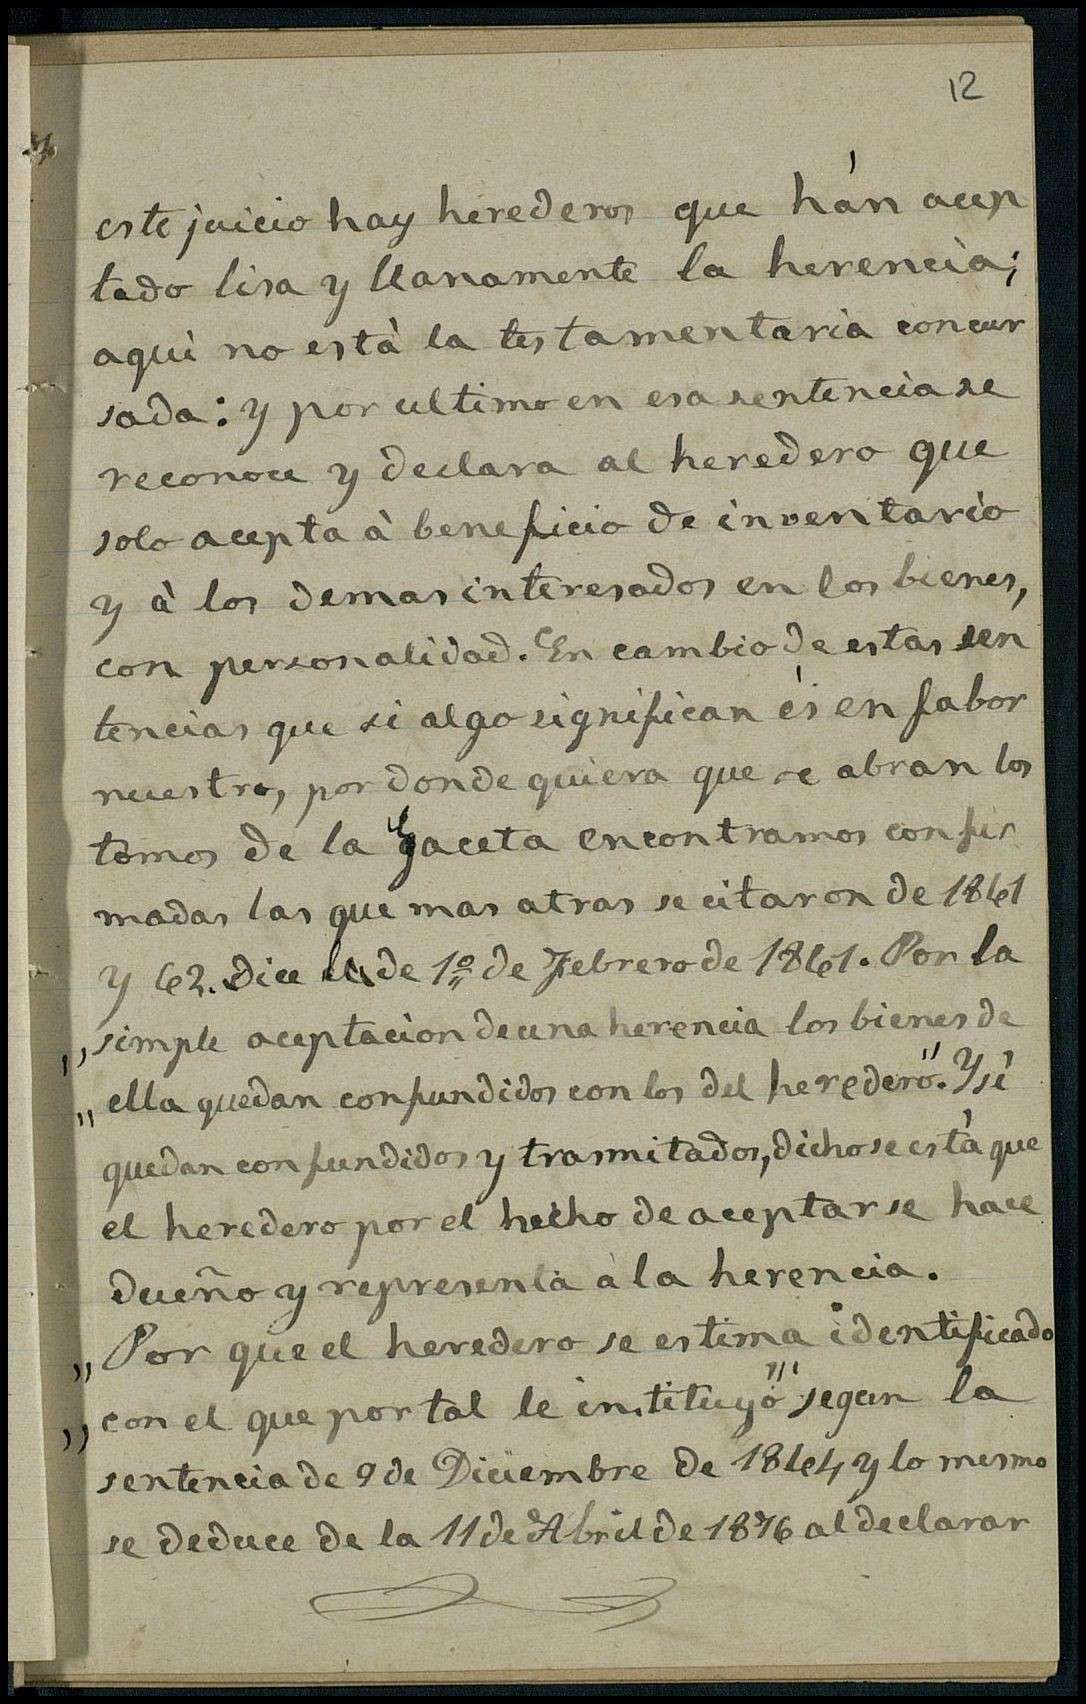 12
este juicio hay herederos que hán acep
tado lisa y llanamente la herencia;
aquì no està la testamentaria concur
sada: y por ultimo en esa sentencia se
reconoce y declara al heredero que
solo acepta à beneficio de inventario
y à los demas interesados en los bienes,
con personalidad. En cambio de estas sen
tencias que si algo significan és en fabor
nuestro, por donde quiera que se abran los
tomos de la gaceta encontramos confir
madas las que mas atras se citaron de 1861
y 62. Dice la de 1º de Febrero de 1861. Por la
,, simple aceptacion de una herencia los bienes de
,, ella quedan confundidos con los del heredero". Y si
quedan confundidos y trasmitados, dicho se está que
el heredero por el hecho de aceptar se hace
dueño y representa à la herencia.
,, Por que el heredero se estima identificado
,, con el que por tal le instituyó" segun la
sentencia de 9 de Diciembre de 1864 y lo mesmo
se deduce de la 11 de Abril de 1876 al declarar